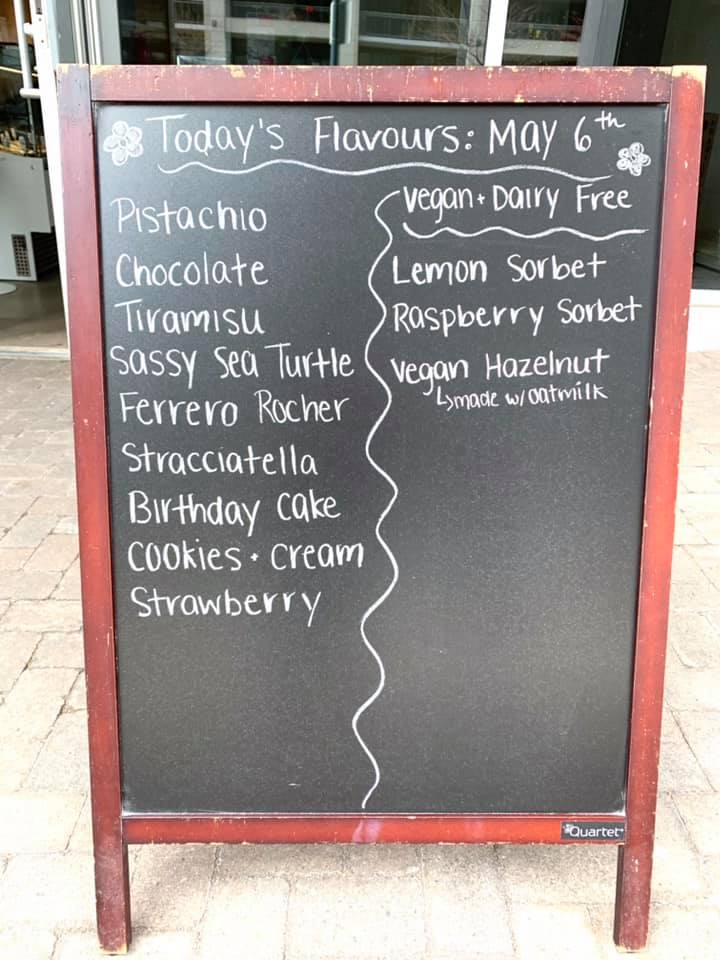 Today's Flavours: May 6th
Pistachio
Chocolate
Tiramisu
Sassy Sea Turtle
Ferrero Rocher
Stracciatella
Birthday Cake
Cookies + Cream
Strawberry
Vegan + Dairy Free
Lemon Sorbet
Raspberry Sorbet
Vegan Hazelnut
↳made w/ oatmilk
Quartet